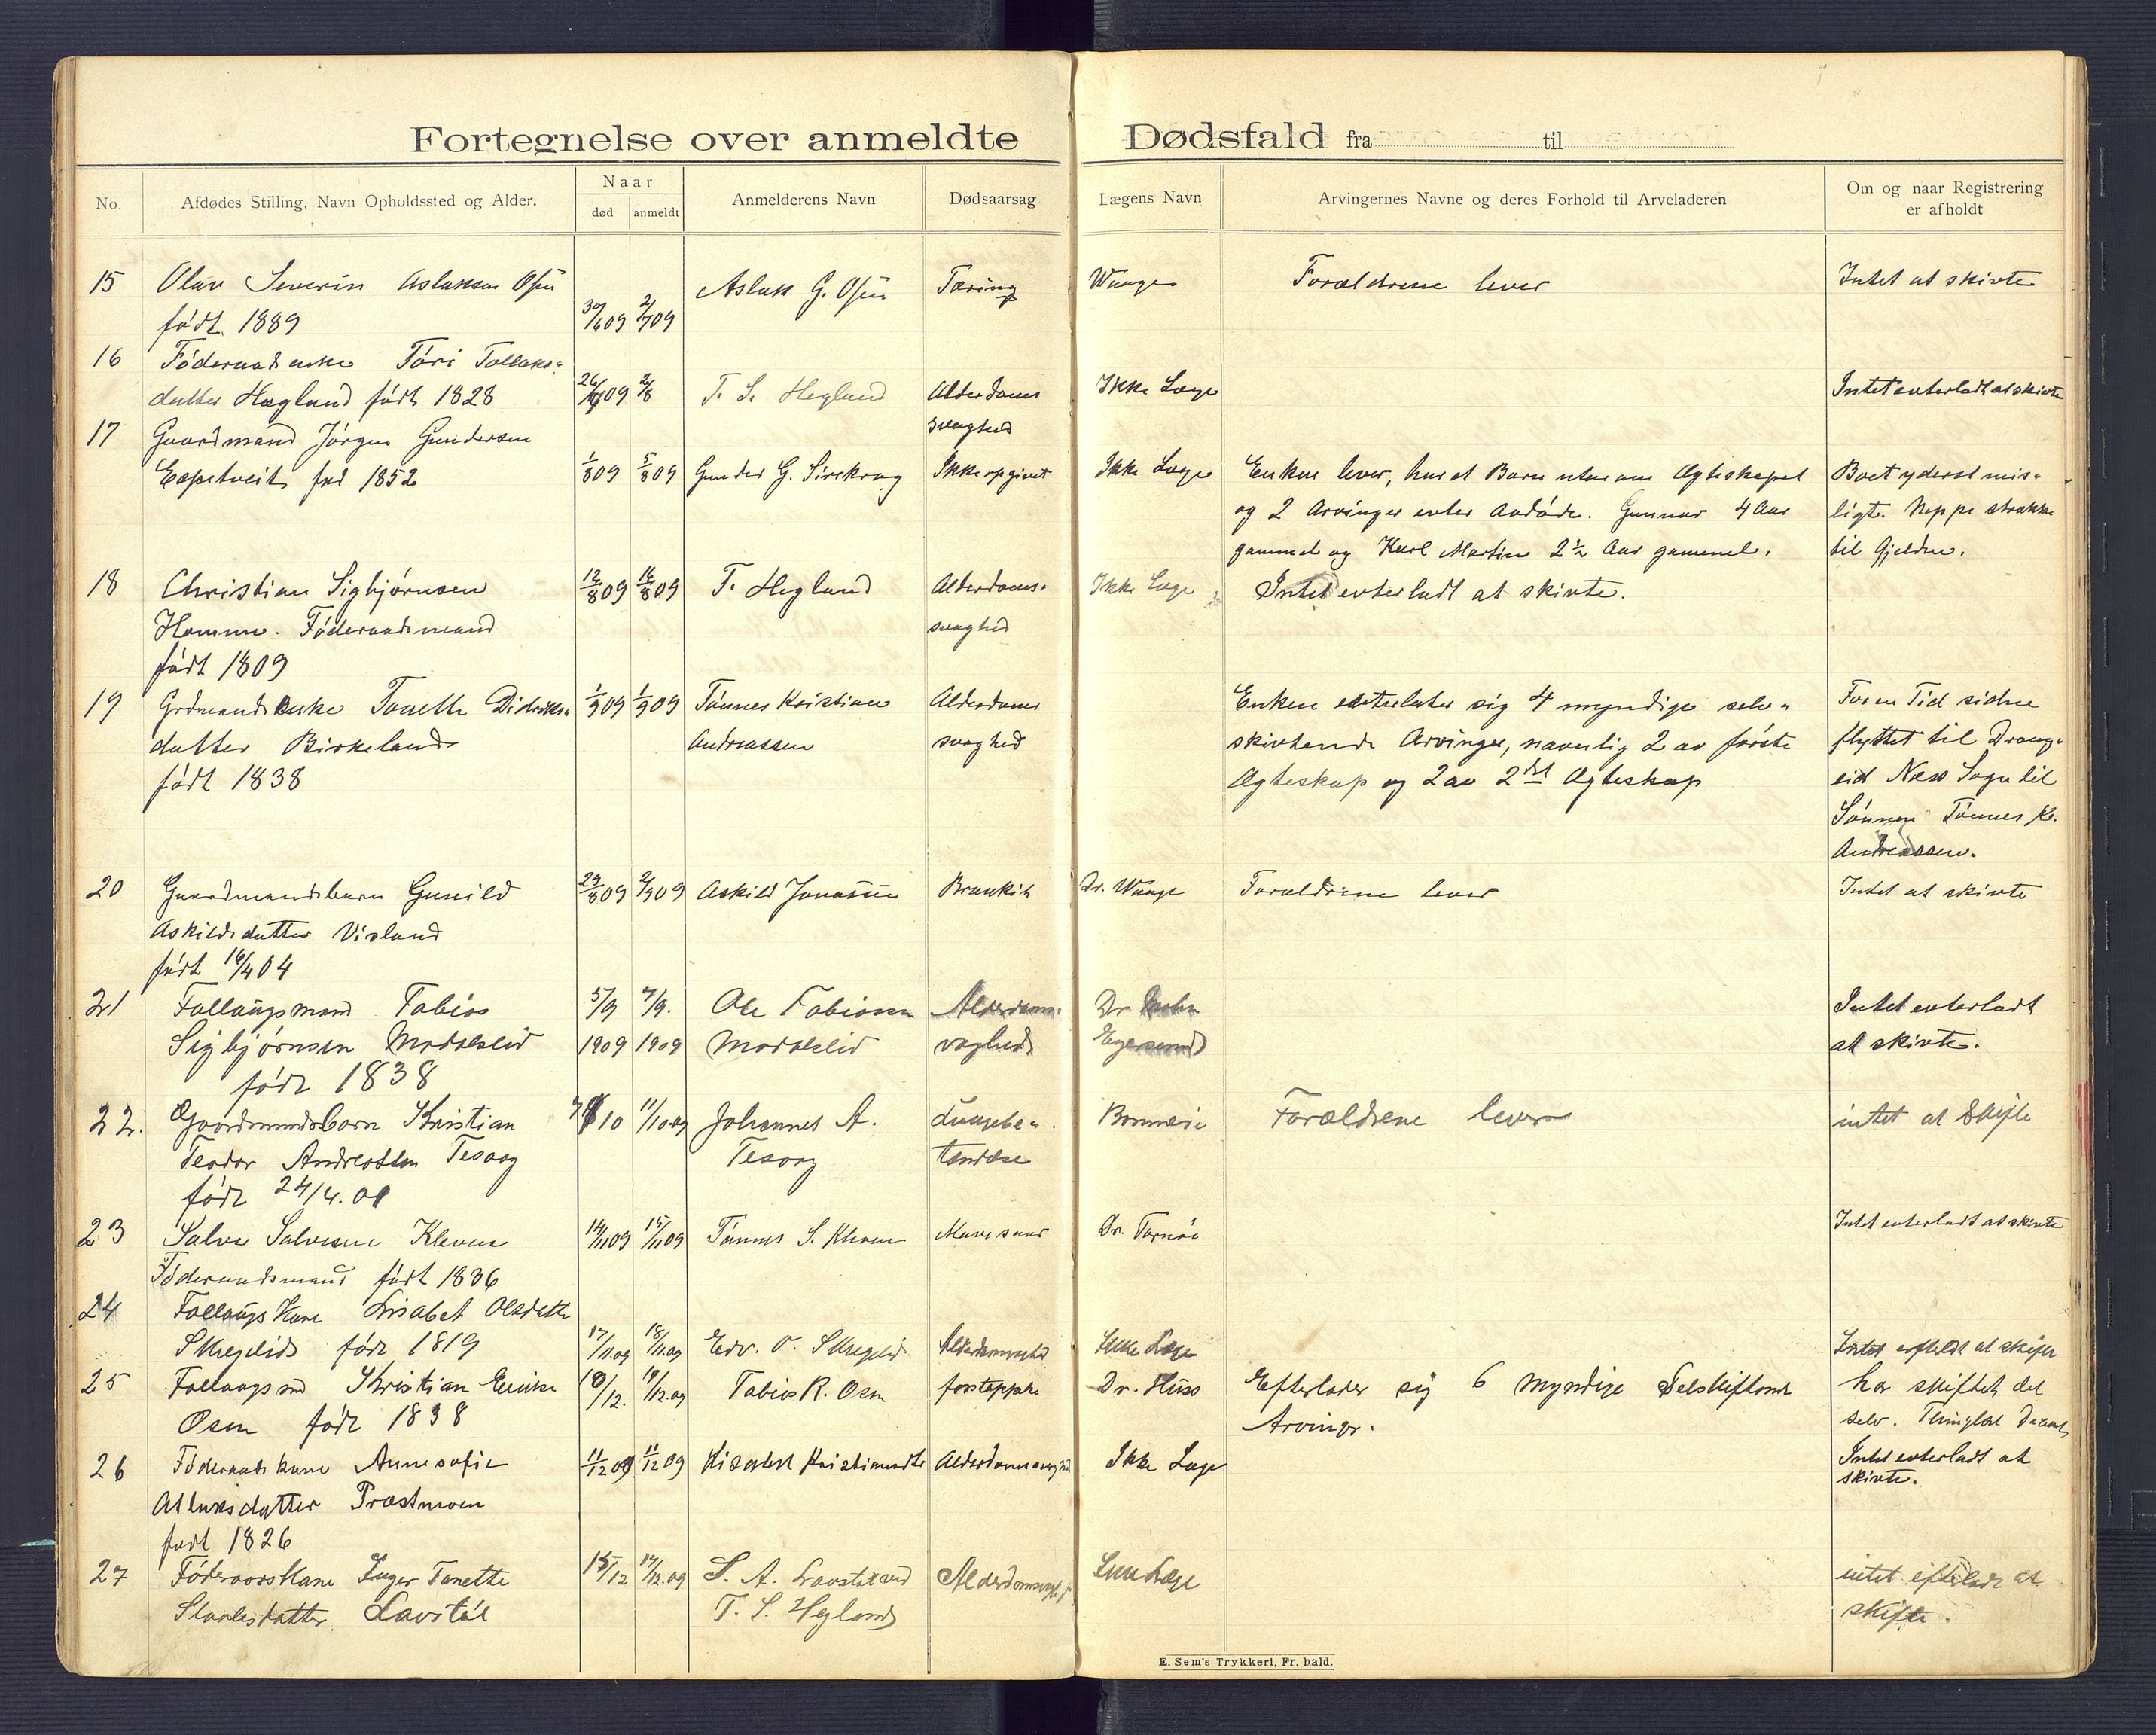 Fortegnelse over anmeldte Dødsfald fra til
No. Afdødes Stilling, Navn Opholdssted og Alder. Naar Anmelderens Navn Dødsaarsag Lægens Navn Arvingernes Navne og deres Forhold til Arveladeren Om og naar Registrering
død anmeldt er afholdt
15 Olav Severin Aslaksen Osen Aslak G. Osen Tæring Waage Forældrene lever Intet at skivte
født 1889 30/6 09 2/7 09
16 Føderaadsenke Tori Tollaks-
datter Hægland født 1828 2/8 T. S. Hegland Alderdoms Ikke Læge Intet evterladt at skivte
svaghed
17 Gaardmand Jørgen Gundersen
Eepstveit fød 1852 1/8 09 5/8 09 Gunder G. Sirekrog Ikke opgivet Ikke Læge Enken lever, har et Barn utenom Ægteskapet Boet yderst mis-
og 2 Arvinger evter Avdøde. Gunnar 4 Aar ligt. Neppe strække
gammel og Karl Martin 2½ Aar gammel. til Gjelden.
18 Christian Sigbjørnsen 12/8 09 16/8 09 T. Hegland Alderdoms- Ikke Læge Intet evterladt at skivte.
Homme. Føderaadsmand svaghed
født 1809
19 Grdmandsenke Tonette Didriks- 1/9 09 1/9 09 Tønnes Kristian Alderdoms Enken evterlater sig 4 myndige selv- For en Tid siden
datter Birkeland Andreassen svaghed skivtende Arvinger, navnlig 2 av første flyttet til Drang-
født 1838 Ægteskap og 2 av 2det Ægteskap eid Næs Sogn til
Sønnen Tønnes K.
Andreassen.
20 Gaardmandsbarn Gunild 29/8 09 2/9 09 Askild Jonassen Bronkit Dr. Waage Forældrene lever Intet at skivte
Askildsdatter Visland
født 16/4 04
21 Follaugsmand Tobias 5/9 7/9. Ole Tobiassen Alderdoms- Dr Intet evterladt
Sigbjørnsen Modalslid 1909 1909 Modalslid vaghed Egersund at skivte.
født 1838
22. Gaardmandsbarn Kristian 10 11/10 09 Johannes A. Lungebe- Forældrene lever intet at skifte
Teodor Andreassen Tesaag Tesaag tændelse
født 24/4. 01
23 Salve Salvesen Kleven 14/11 09 15/11 09 Tønnes S. Kleven Mavesaar Dr. Tornøe Intet evterladt at skivte
Føderaadsmand født 1836
24 Follaugs Kone Lisabet Olsdatter
Skregelid født 1819 17/11.09 18/11.09 Edv. O. Skregelid Alderdomsvaghed Ikke Læge Intet efterladt at skifte
25 Follaugsmd Kristian Eeriksen /12. /12.09 Tobias K. Osen forstoppelse Dr. Huss Efterlader sig 6 myndige Selskiftende har skiftet det
Osen født 1838 Arvinger. selv.
26 Føderaadskone Annesofie 11/12 09 11/12 09 Alderdomssvaghed Ikke Læge Intet evterladt at
Atlaksdatter Præstmoen skivte.
født 1826
27 Føderaadskone Inger Tonette 15/12 17/12.09 S. A. Alderdomsvaghed Ikke Læge intet efterladt at
Staalesdatter Lavstøl T. S. Hegland skifte.
E. Sem's Trykkeri, Fr. hald.